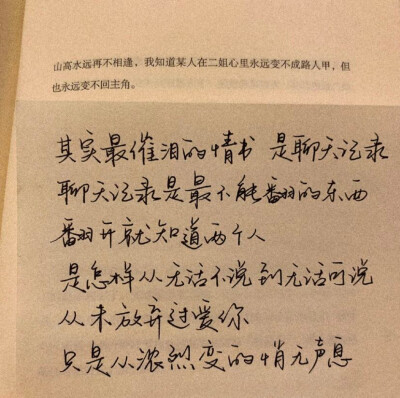 山高水远再不相逢，我知道某人在二姐心里永远变不成路人甲，但
也永远变不回主角。
其实最催泪的情书 是聊天记录
聊天记录是最不能翻的东西
翻开就知道两个人
是怎样从无话不说到无话可说
从未放弃过爱你
只是从浓烈变的悄无声息